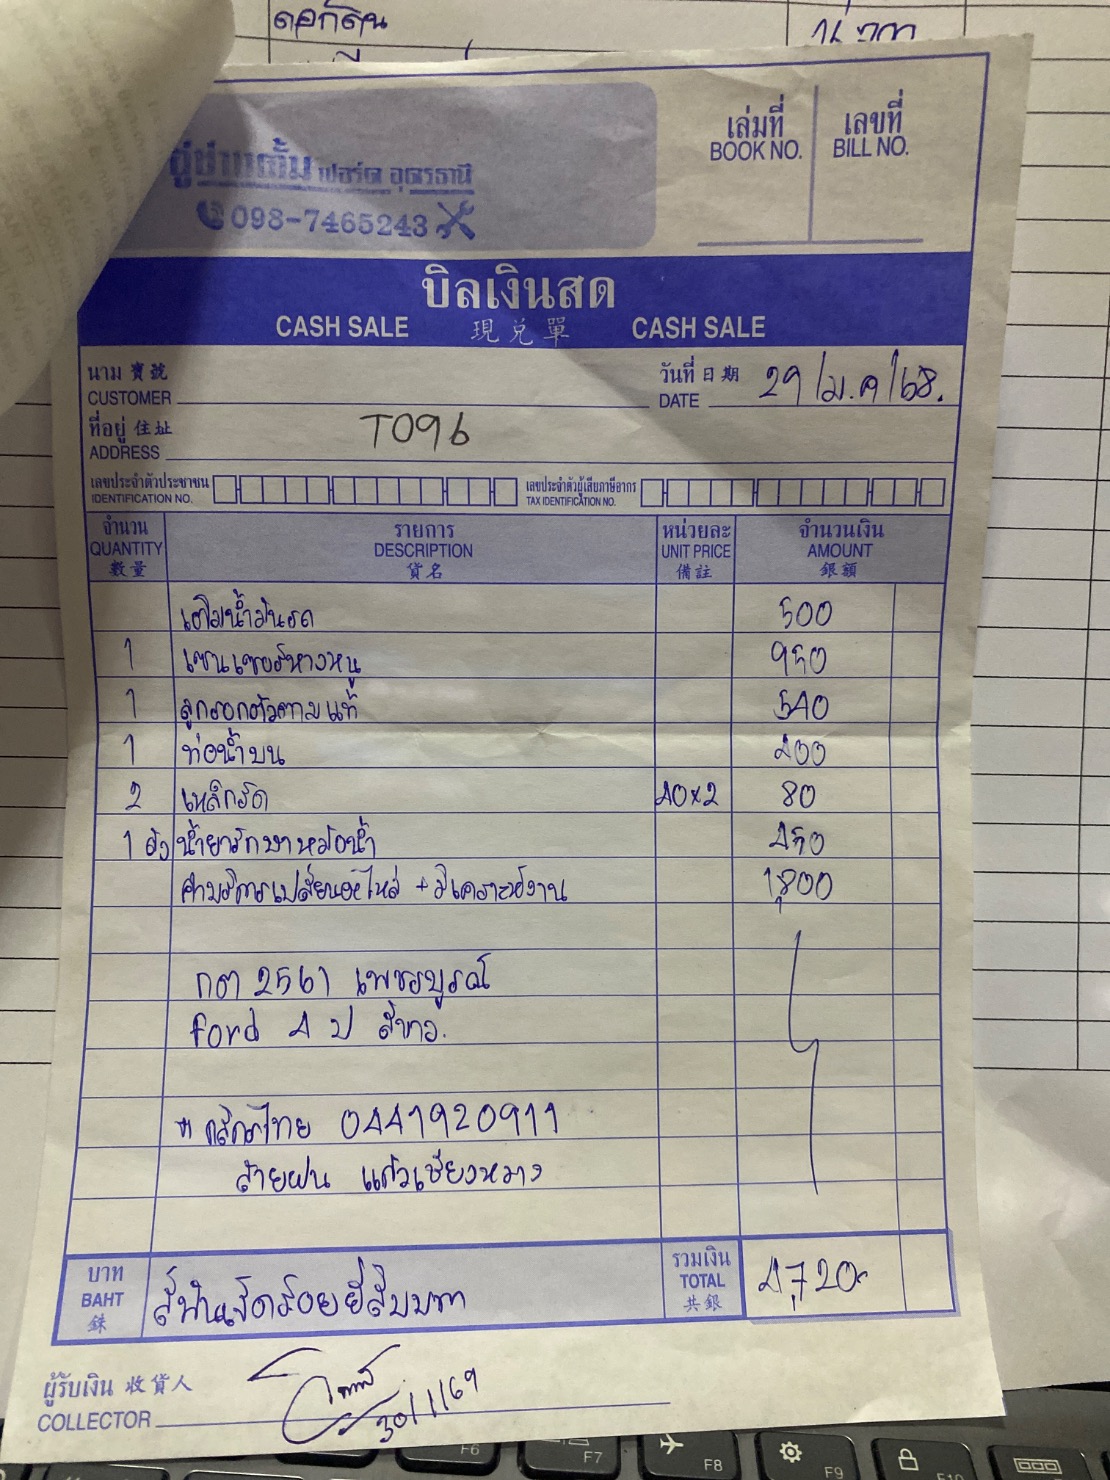 ดอกดิน
อู่ช่างตั้ม ฟอร์ด อุดรธานี
098-7465243
เล่มที่ เลขที่
BOOK NO. BILL NO.
บิลเงินสด
CASH SALE 現兌單 CASH SALE
นาม 寶號 วันที่ 日期 29/ม.ค/68.
CUSTOMER DATE
ที่อยู่ 住址 T096
ADDRESS
เลขประจำตัวประชาชน เลขประจำตัวผู้เสียภาษีอากร
IDENTIFICATION NO. TAX IDENTIFICATION NO.
จำนวน รายการ หน่วยละ จำนวนเงิน
QUANTITY DESCRIPTION UNIT PRICE AMOUNT
數量 貨名 備註 銀額
เติมน้ำมันรถ 500
1 เซนเซอร์หางหนู 950
1 ลูกรอกตัวตามแท้ 540
1 ท่อน้ำบน 400
2 เหล็กรัด 40x2 80
1 ถัง น้ำยารักษาหม้อน้ำ 450
ค่าบริการเปลี่ยนอะไหล่ + วิเคราะห์งาน 1,800
กต 2561 เพชรบูรณ์
ford 4 ป สีขาว.
* กสิกรไทย 0441920911
สายฝน แก้วเชียงหวาง
บาท รวมเงิน
BAHT สี่พันเจ็ดร้อยยี่สิบบาท TOTAL 4,720
銖 共銀
ผู้รับเงิน 收貨人
COLLECTOR 30/1/69
F6 F7 F8 F9 F10